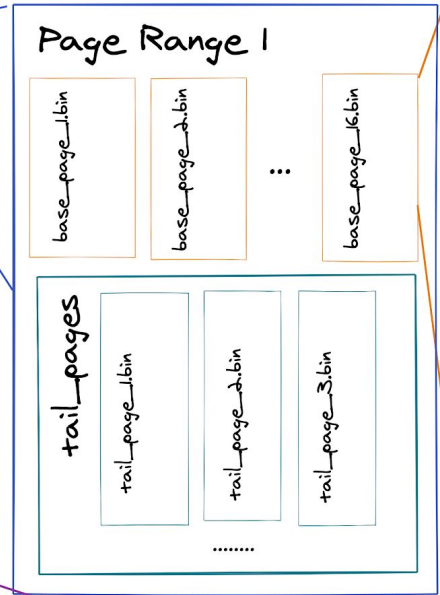 Page Range 1
base_page_1.bin
base_page_2.bin
...
base_page_16.bin
tail_pages
tail_page_1.bin
tail_page_2.bin
tail_page_3.bin
........